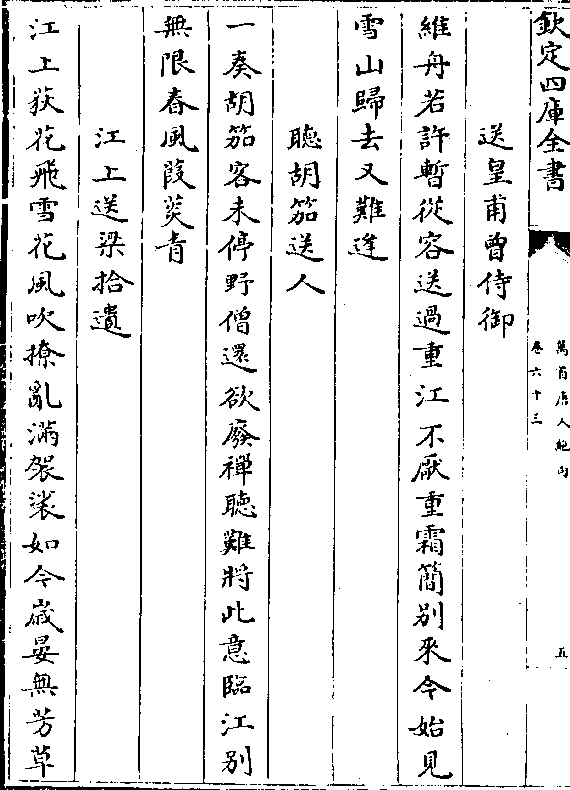 欽定四庫全書
萬首唐人絶句
卷六十三
五
送皇甫曾侍御
維舟若許暫從容送過重江不厭重霜簡別來今始見
雪山歸去又難逢
聽胡笳送人
一奏胡笳客未停野僧還欲廢禪聽難將此意臨江別
無限春風葭菼青
江上送梁拾遺
江上荻花飛雪花風吹撩亂滿袈裟如今歲晏無芳草